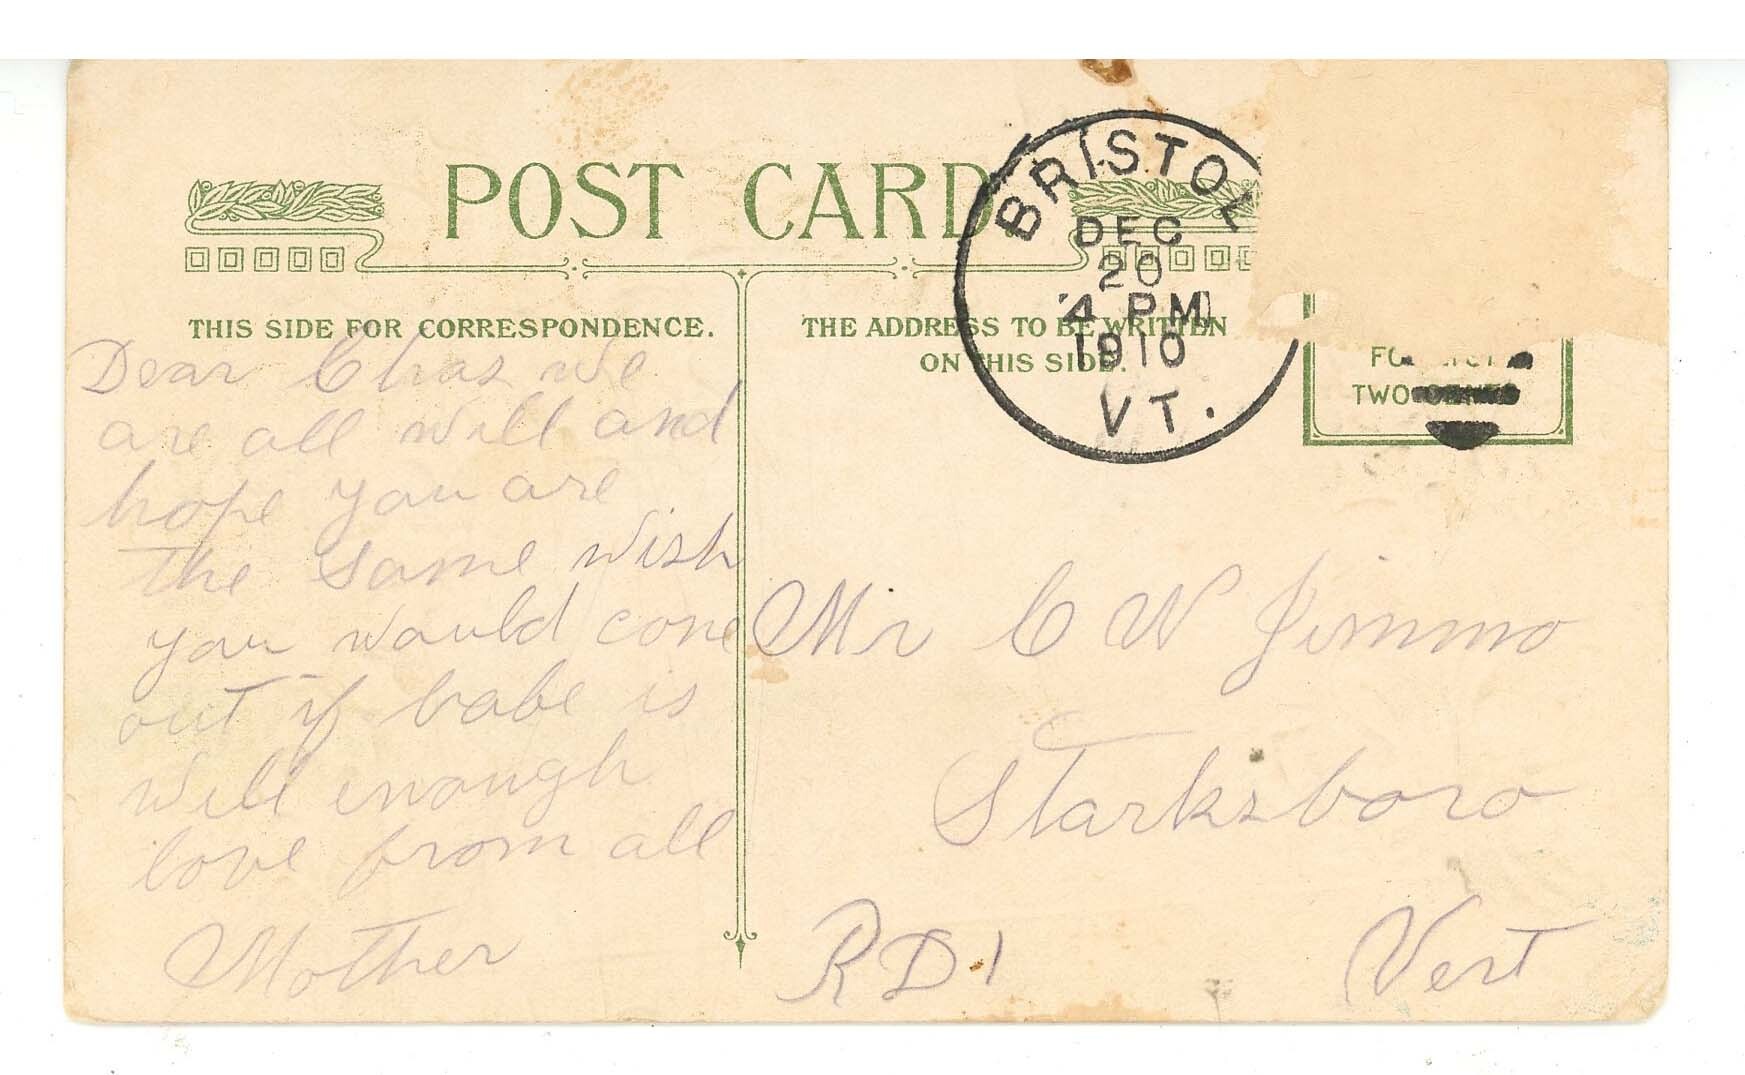 POST CARD
BRISTOL
DEC
20
4 PM
1910
VT.
THIS SIDE FOR CORRESPONDENCE.
THE ADDRESS TO BE WRITTEN
ON THIS SIDE.
TWO CENTS
Dear Chas we
are all well and
hope you are
the same wish
you would come
out if babe is
well enough
love from all
Mother
Mr C W Jimmo
Starksboro
RD 1 Vert